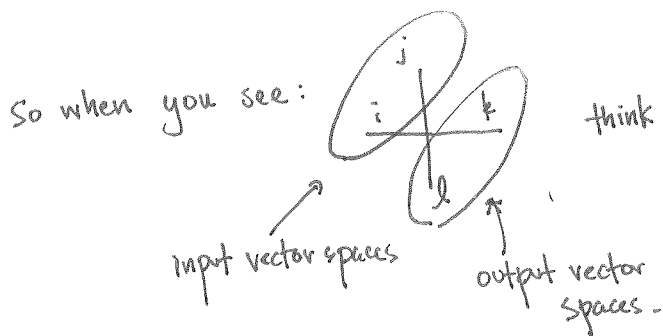 So when you see:
j
i
k
l
think
input vector spaces
output vector
spaces.